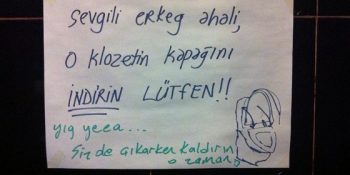 Sevgili erkeg ahali,
o klozetin kapağını
İNDİRİN LÜTFEN!!
yıq yeea...
Siz de çıkarken kaldırın
o zaman :)